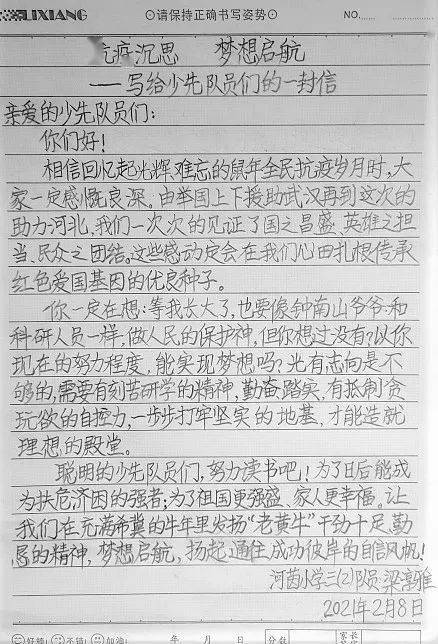 LIXIANG ⊙请保持正确书写姿势⊙ NO.
抗疫沉思 梦想启航
——写给少先队员们的一封信
亲爱的少先队员们：
你们好！
相信回忆起光辉难忘的鼠年全民抗疫岁月时，大
家一定感慨良深。由举国上下援助武汉再到这次的
助力河北，我们一次次的见证了国之昌盛、英雄之担
当、民众之团结。这些感动定会在我们心田扎根传承
红色爱国基因的优良种子。
你一定在想：等我长大了，也要像钟南山爷爷和
科研人员一样，做人民的保护神，但你想过没有？以你
现在的努力程度，能实现梦想吗？光有志向是不
够的，需要有刻苦研学的精神，勤奋踏实，有抵制贪
玩欲的自控力，一步步打牢坚实的地基，才能造就
理想的殿堂。
聪明的少先队员们，努力读书吧！为了日后能成
为扶危济困的强者；为了祖国更强盛、家人更幸福。让
我们在充满希冀的牛年里发扬“老黄牛”干劲十足、勤
恳的精神，梦想启航，扬起通往成功彼岸的自信风帆！
河茵小学三(2)队员：梁淳雅
2021年2月8日
好棒！ 不错！ 加油！ 年 月 日 分数 家长